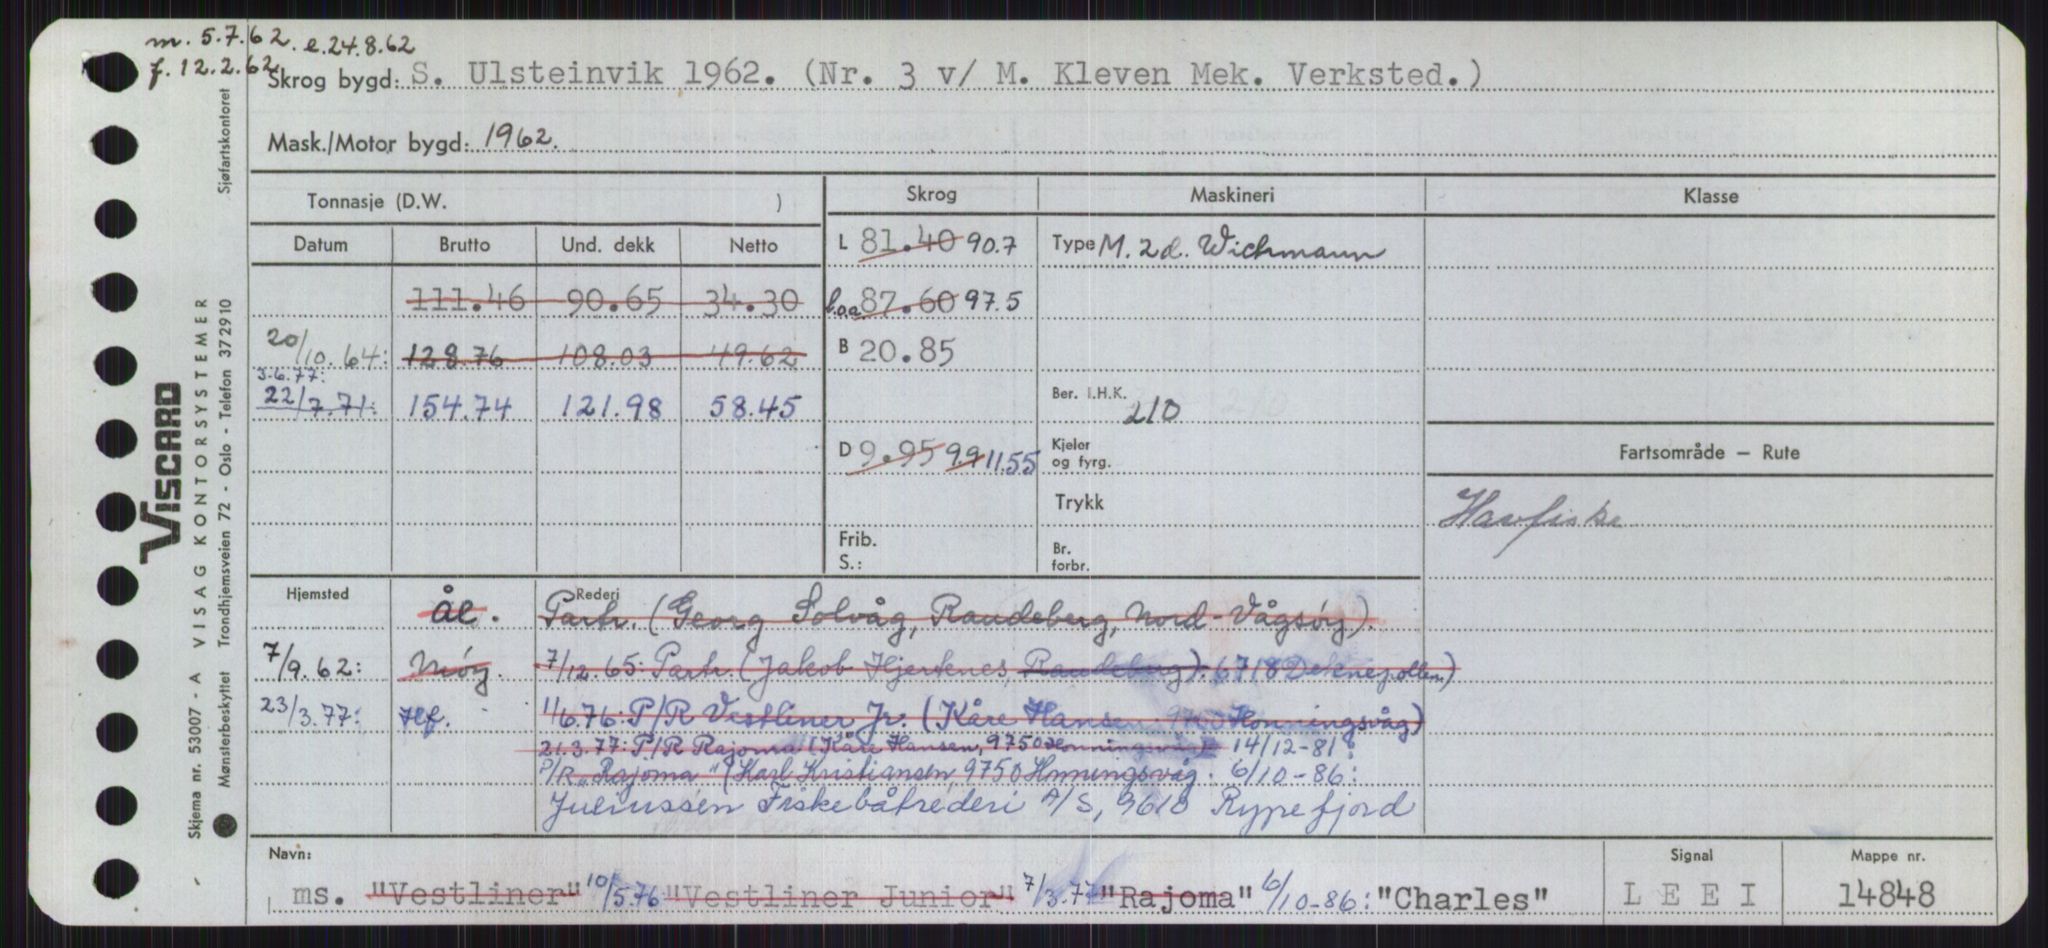 m. 5.7.62. e.24.8.62
f. 12.2.62
Skrog bygd: S. Ulsteinvik 1962. (Nr. 3 v/ M. Kleven Mek. Verksted.)
Mask./Motor bygd: 1962.
Tonnasje (D.W. ) Skrog Maskineri Klasse
Datum Brutto Und. dekk Netto
L 81.40 90.7 Type M. 2d. Wichmann
111.46 90.65 34.30 l.o.a 87.60 97.5
20/10.64: 128.76 108.03 49.62 B 20.85
3.6.77:
22/7.71: 154.74 121.98 58.45 Ber. I.H.K. 210
D 9.95 9.9 11.55 Kjeler og fyrg. Fartsområde — Rute
Trykk Havfiske
Frib. S.: Br. forbr.
Hjemsted Rederi
Ål. Partr. (Georg Solvåg, Raudeberg, Nord-Vågsøy).
7/9.62: Møy. 7/12.65: Partr. (Jakob Hjertenes, Raudeberg). 6718 Deknepollen)
23/3.77: Hf. 1/6.76: P/R Vestliner Jr. (Kåre Hansen. 9750 Honningsvåg)
21.3.77: P/R Rajoma (Kåre Hansen, 9750 Honningsvåg) 14/12-81:
P/R "Rajoma" (Karl Kristiansen, 9750 Honningsvåg. 6/10-86:
Juliussen Fiskebåtrederi A/S, 9610 Rypefjord
Navn: Signal Mappe nr.
ms. "Vestliner" 10/5.76 "Vestliner Junior" 7/3.77 "Rajoma" 6/10-86: "Charles" LEEI 14848
Viscard
VISAG KONTORSYSTEMER
Skjema nr. 53007 - A
Mønsterbeskyttet Trondhjemsveien 72 - Oslo - Telefon 372910
Sjøfartskontoret